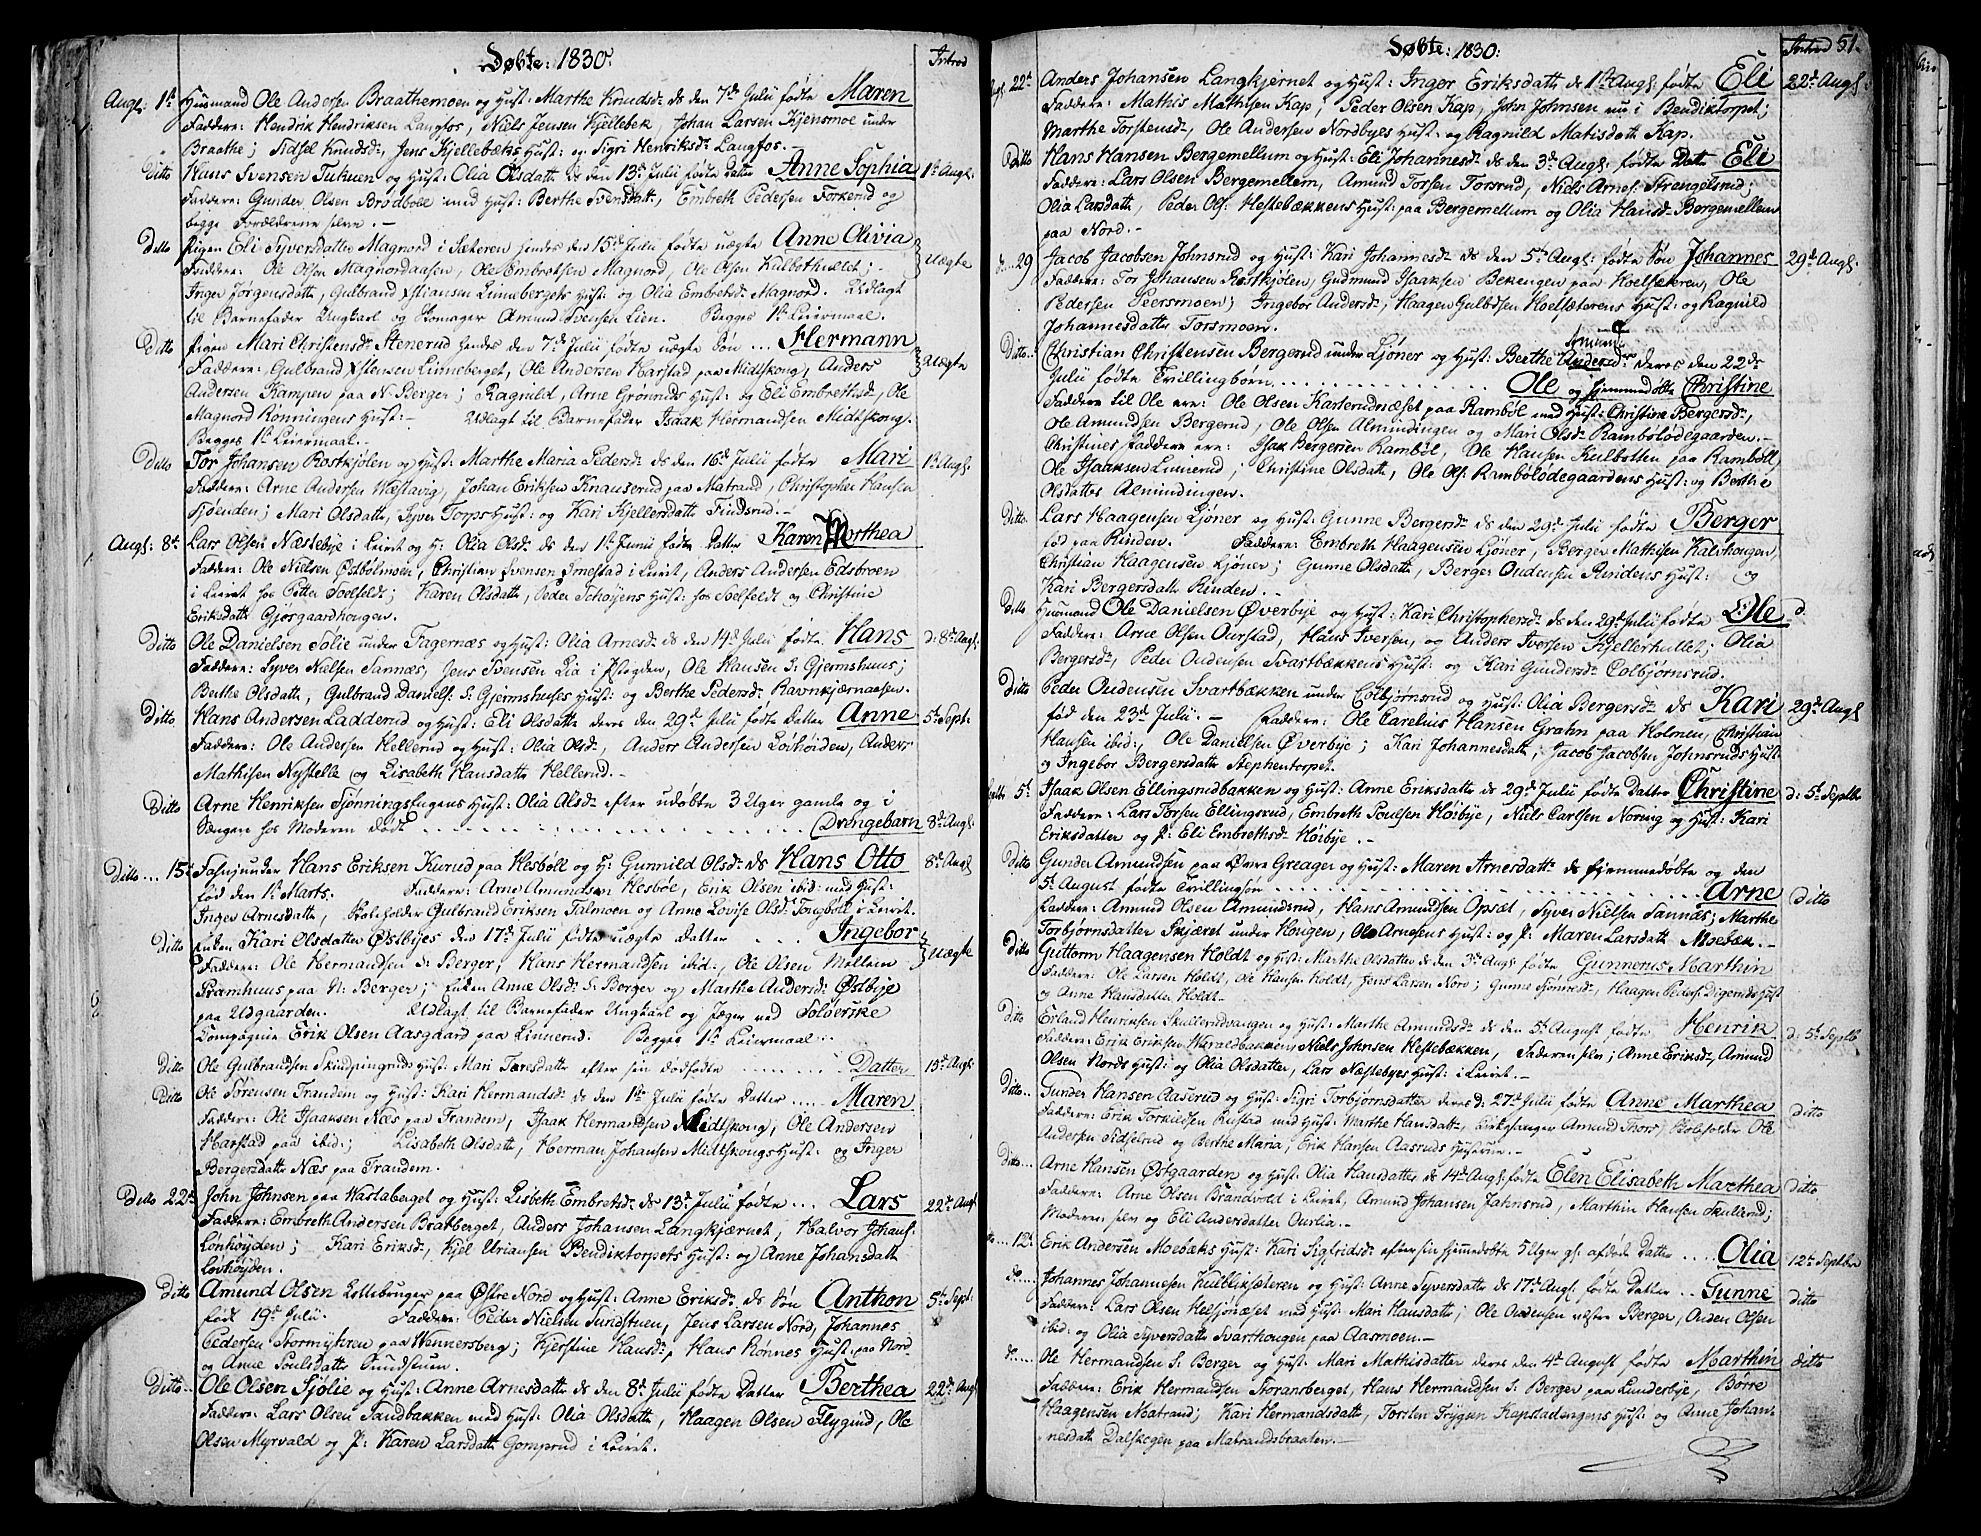 Døbte: 1830.
Introd
Augs: 1st Huusmand Ole Andersen Braathemoen og Hust: Marthe Knudsdr ds den 7de Julii fødte Maren
Faddere: Hendrik Hendriksen Langfos, Niels Jensen Kjellebek, Johan Larsen Kjensmoe under
Braathe; Sidsel Knudsdr, Jens Kjellebæks Hust: og Sigri Henriksdr Langfos.-
Ditto Hans Svensen Tukuen og Hust: Olia Olsdatter ds den 13de Julii fødte Datter Anne Sophia 1st Augs:
Faddere: Gunder Olsen Brødbøll med Hust: Berthe Svensdatt, Embreth Pedersen Forkerud og
begge Forældrene selve.-
Ditto Pigen Eli Syversdatter Magnord i Sæteren hendes den 15de Julii fødte uægte Anne Olivia
Faddere: Ole Olsen Magnordaasen, Ole Embretsen Magnord, Ole Olsen Kulbothullet; Uægte
Inger Jørgensdatter, Gulbrand Estiansen Linnebergets Hust: og Olia Embretsdr Magnord. Udlagt
til Barnefader Ungkarl og Skomager Amund Svensen Lien. Begges 1st Leiermaal.
Ditto Pigen Mari Christensdr Stenerud hendes den 7de Julii fødte uægte Søn ... Hermann
Faddere: Gulbrand Estensen Linneberget, Ole Andersen Harstad paa Midtskong, Anders Uægte
Andersen Kampen paa N: Berger; Ragnild, Arne Grønnerds Hust: og Eli Embrethsdr, Ole
Magnord Rønningens Hust:- Udlagt til Barnefader Isaak Hermandsen Midtskong.
Begges 1st Leiermaal.-
Ditto Tor Johansen Rostkjølen og Hust: Marthe Maria Pedersdr ds den 16de Julii fødte Mari 1st Augs:
Faddere: Arne Andersen Wæstavig, Johan Eriksen Knauserud paa Matrand, Christopher Hansen
; Mari Olsdatter, Syver Torps Hust: og Kari Kjellersdatter Findsrud.-
Augs: 8de Lars Olsen Næstebye i Leiret og H: Olia Olsdr ds den 1st Junii fødte Datter Karen Marthea
Faddere: Ole Nielsen Østbølmoen, Christian Svensen Imestad i Leiret, Anders Andersen Edsbroen
i Leiret hos Petter Soelfeldt; Karen Olsdatter, Peder Schøyens Hust: hos Soelfeldt og Christine
Eriksdatter Gjørgaardhougen.
Ditto Ole Danielsen Solie under Fagernæs og Hust: Olia Arnesdr ds den 14de Julii fødte Hans d: 8de Augs:
Faddere: Syver Nielsen Sannæs, Jens Svensen Lia i , Ole Hansen S: Gjermshuus;
Berthe Olsdatter, Gulbrand Daniels: S: Gjermshuses Hust: og Berthe Pedersdr Ravnkjærnaasen.
Ditto Hans Andersen Ladderud og Hust: Eli Olsdatter deres den 29de Julii fødte Datter Anne 5te Sept:
Faddere: Ole Andersen Hellerud og Hust: Olia Olsdr, Anders Andersen Løvhøiden, Anders
Mathisen Nystelle og Lisabeth Hansdatter Hellerud.-
Ditto Arne Henriksen Sjønningshagens Hust: Olia Olsdr efter udøbte 3 Uger gamle og i
Sengen hos Moderen døde ... Drengebarn 8de Augs:
Ditto ... 15de Hans Eriksen Kurud paa Hesbøll og H: Gunnild Olsdr ds Hans Otto 8de Augs
fød den 1st Marts. Faddere: Arne Amundsen Hesbøl, Erik Olsen ibid: med Hust:
Inger Arnesdatter, Gulbrand Eriksen Talmoen og Anne Lovise Olsdr Tongbøll i Leiret.
Ditto Enken Kari Olsdatter Østbyes den 17de Julii fødte uægte Datter ... Ingebor
Faddere: Ole Hermandsen S: Berger, Hans Hermandsen ibid:, Ole Olsen Uægte
Framhuus paa N: Berger; Enken Anne Olsdr S: Berger og Marthe Andersdr: Østbye
paa Udgaarden. Udlagt til Barnefader Ungkarl og Jæger ved Solverske
Compagnie Erik Olsen Aasgaard paa Linnerud. Begges 1st Leiermaal.-
Ditto Ole Gulbrandsen Skindpingruds Hust: Mari Toresdatter efter sin dødfødte ... Datter 15de Augs
Ditto Ole Sørensen Trandem og Hust: Kari Hermandsdr ds den 1st Julii fødte Datter ... Maren
Faddere: Ole Isaaksen Næs paa Trandem, Isaak Hermandsen Midtskong, Ole Andersen
Harstad paa ibid:; Lisabeth Olsdatter, Herman Johansen Midtskongs Hust: og Inger
Bergersdatter Næs paa Trandem.
Ditto 22de John Johnsen paa Wastaberget og Hust: Lisbeth Embretsdr ds 13de Julii fødte ... Lars 22de Augs
Faddere: Embreth Andersen Bratberget, Anders Johansen Langkjærnet, Halvor Johans:
Lønhøyden; Kari Eriksdr, Kjel Uriansen Bendiktorpets Hust: og Anne Johansdatter
Lovhøyden.
Ditto Amund Olsen Lottebruger paa Østre Nord og Hust: Anne Eriksdr ds Søn Anthon 5te Sept:
født 19de Julii. Faddere: Peder Nielsen Sundstuen, Jens Larsen Nord, Johannes
Pedersen Stormyhren paa Wennersberg; Kjerstine Hansdr, Hans Rønnes Hust: paa Nord
og Anne Poulsdatter Sundstuen.
Ditto.. Ole Olsen Sjølie og Hust: Anne Arnesdatter ds den 8de Julii fødte Datter Berthea 22de Augs
Faddere: Lars Olsen Sandbakken med Hust: Olia Olsdatter, Haagen Olsen Flygind, Ole
Olsen Myrvald og P: Karen Larsdatter Gomprud i Leiret.
Døbte: 1830:
Introd 51.
Augs: 22de Anders Johansen Langkjernet og Hust: Inger Eriksdatter ds 1st Augs: fødte Eli 22de Augs:
Faddere: Mathis Mathisen Kap, Peder Olsen Kap, John Johnsen nu i Bendiktorpet;
Marthe Torstensdr, Ole Andersen Nordbyes Hust: og Ragnild Matisdatter Kap.
Ditto Hans Hansen Bergemellum og Hust: Eli Johannesdr ds den 3de Augs: fødte Datter Eli
Faddere: Lars Olsen Bergemellem, Amund Torsen Torsrud, Niels Arnes: Strengelsrud;
Olia Larsdatter, Peder Ols: Hestebækkens Hust: paa Bergemellum og Olia Hansdr Bergemellem
paa Nord.-
d: 29 Jacob Jacobsen Johnsrud og Hust: Kari Johannesdr ds den 5te Augs: fødte Søn Johannes 29de Augs:
Faddere: Tor Johansen Rostkjølen, Gudmund Isaaksen Bekengen paa Hoelsæteren, Ole
Pedersen Peersmoen; Ingebor Andersdr, Haagen Gulbrdsen Hoelsæterens Hust: og Ragnild
Johannesdatter Torsmoen.
Ditto.. Christian Christensen Bergerud under Ljøner og Hust: Berthe Andersdr deres den 22de
Julii fødte Tvillingbørn ... Ole og hjemmedøbte Christine
Faddere til Ole ere: Ole Olsen Karterudnæset paa Rambøl med Hust: Christine Bergersdr,
Ole Amundsen Bergerud, Ole Olsen Almindingen og Mari Olsdr Rambølødegaarden.-
Christines Faddere ere: Isak Bergersen Rambøl, Ole Hansen Kulbotten paa Rambøll,
Ole Isaaksen Linnerud; Christine Olsdatter, Ole Ols: Rambølødegaardens Hust: og Berthe
Olsdatter Almindingen.
Ditto. Lars Haagensen Ljøner og Hust: Gunne Bergersdr ds den 29de Julii fødte Berger
fød paa Rinden. Faddere: Embreth Haagensen Ljøner, Berger Mathisen Kalvhougen,
Christian Haagensen Ljøner; Gunne Olsdatter, Berger Oudensen Rindens Hust: og
Kari Bergersdatter Rinden.-
Ditto Huusmand Ole Danielsen Øverbye og Hust: Kari Christophersdr ds den 29de Julii fødte Ole d.
Faddere: Arne Olsen Ourstad, Hans Iversen, og Anders Iversen Kjellerhullet; Olia
Bergersdr, Peder Oudensen Svartbækkens Hust: og Kari Gundersdr Colbjørnsrud.
Ditto Peder Oudensen Svartbækken under Colbjørnsrud og Hust: Olia Bergersdr ds Kari 29de Augs
fød den 23de Julii.- Faddere: Ole Carelius Hansen Grahn paa Holmen, Christian
Hansen ibid:, Ole Danielsen Øverbye; Kari Johannesdatter, Jacob Jacobsen Johnsruds Hust:
og Ingebor Bergersdatter Stephentorpet.
Septbr 5te Isaak Olsen Ellingsrudbakken og Hust: Anne Eriksdatter ds 29de Julii fødte Datter Christine d: 5te Septbr
Faddere: Lars Torsen Ellingsrud, Embreth Poulsen Høibye, Niels Carlsen Noring og Hust: Kari
Eriksdatter og P: Eli Embrethsdr Høibye.-
Ditto Gunder Amundsen paa Øvre Greager og Hust: Maren Arnesdatter ds hjemmedøbte og den
5te August fødte Tvillingsøn ... Arne Ditto
Faddere: Amund Olsen Amundsrud, Hans Amundsen Opsæt, Syver Nielsen Sannæs; Marthe
Torbjørnsdatter Skjæret under Hougen, Ole Arnesens Hust: og P: Maren Larsdatter Moebæk.-
Ditto Guttorm Haagensen Holdt og Hust: Marthe Olsdatter ds den 3de Augs: fødte Gunnerus Marthin
Faddere: Ole Larsen Holdt, Ole Hansen Holdt, Jens Larsen Nord; Gunne Simensdr, Haagen Peders: Digeruds Hust
og Anne Hansdatter Holdt.-
Ditto Erland Henriksen Skullerudvangen og Hust: Marthe Amundsdr ds den 5te August fødte Henrik d: 5te Septb
Faddere: Erik Eriksen Weraldbakken, Niels Johnsen Hestebækken, Faderen selv; Anne Eriksdr, Amund
Olsen Nords Hust: og Olia Olsdatter, Lars Næstebyes Hust: i Leiret.-
Ditto.. Gunder Hansen Aaserud og Hust: Sigri Torbjørnsdatter deres d: 27de Julii fødte Anne Marthea Ditto
Faddere: Erik Torkildsen Rustad med Hust: Marthe Hansdatter, Kirkesanger Amund Thors:, Ole
Andersen Sidselrud og Berthe Maria, Erik Hansen Aasruds Hustrue.-
Ditto... Arne Hansen Østgaarden og Hust: Olia Hansdatter ds 14de Augs: fødte Elen Elisabeth Marthea ditto
Faddere: Arne Olsen Brandvold i Leiret, Amund Johansen Jahnsrud, Marthin Hansen Skullerud;
Moderen selv og Eli Andersdatter Ourlia.-
12te Erik Andersen Moebæks Hust: Kari Sigfridsdr efter sin hjemmedøbte 5 Uger gl: afdøde Datter ... Olia 12te Septbr
d: ... Johannes Johannesen Kulbliksæteren og Hust: Anne Syversdatter ds 17de Augs: fødte Datter .. Gunne ditto
Faddere: Lars Olsen Helsjønæset med Hust: Mari Hansdatter; Ole Oudensen vestre Berger, Ouden Olsen
ibid: og Olia Syversdatter Svarthougen paa Aasmoen.-
d: .... Ole Hermandsen S: Berger og Hust: Mari Mathisdatter deres den 4de August fødte Marthin ditto
Faddere: Erik Hermandsen Storansberget, Hans Hermandsen S: Berger paa Lunderbye, Børre
Haagensen Matrand; Kari Hermandsdatter, Torsten Trygsen Kapstadengens Hust: og Anne Johan-
nesdatter Dalskogen paa Matrandsbraaten.-